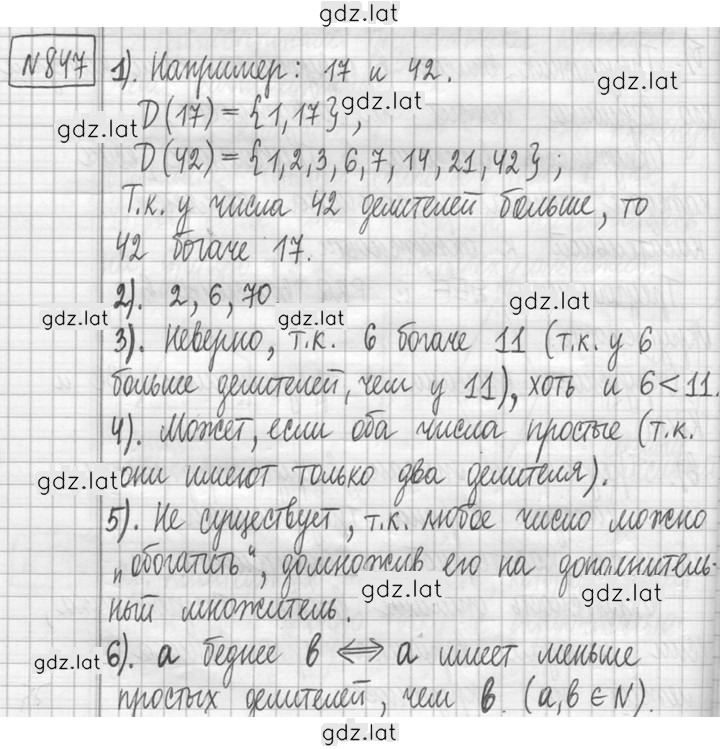 gdz.lat
№847 1). Например: 17 и 42.
gdz.lat
D(17) = {1,17},
gdz.lat gdz.lat
D(42) = {1,2,3,6,7,14,21,42};
Т.к. у числа 42 делителей больше, то
42 богаче 17.
2). 2, 6, 70
gdz.lat gdz.lat gdz.lat
3). Неверно, т.к. 6 богаче 11 (т.к. у 6
больше делителей, чем у 11), хоть и 6<11.
4). Может, если оба числа простые (т.к.
gdz.lat они имеют только два делителя).
5). Не существует, т.к. любое число можно
„обогатить“, домножив его на дополнитель-
gdz.lat gdz.lat
ный множитель.
gdz.lat 6). а беднее в ⟺ а имеет меньше
простых делителей, чем в. (а,в ∈ N).
gdz.lat